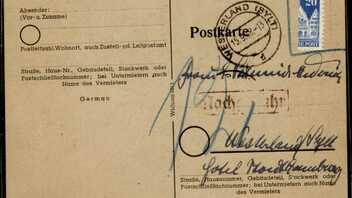 Absender:
(Vor- u. Zuname)
Postleitzahl, Wohnort, auch Zustell- od. Leitpostamt
Straße, Haus-Nr., Gebäudeteil, Stockwerk oder
Postschließfachnummer; bei Untermietern auch
Name des Vermieters
German
WESTERLAND (SYLT)
Postkarte
20
Nach
Westerland Sylt
Hotel
Straße, Hausnummer, Gebäudeteil, Stockwerk oder
Postschließfachnummer; bei Untermietern auch
Name des Vermieters